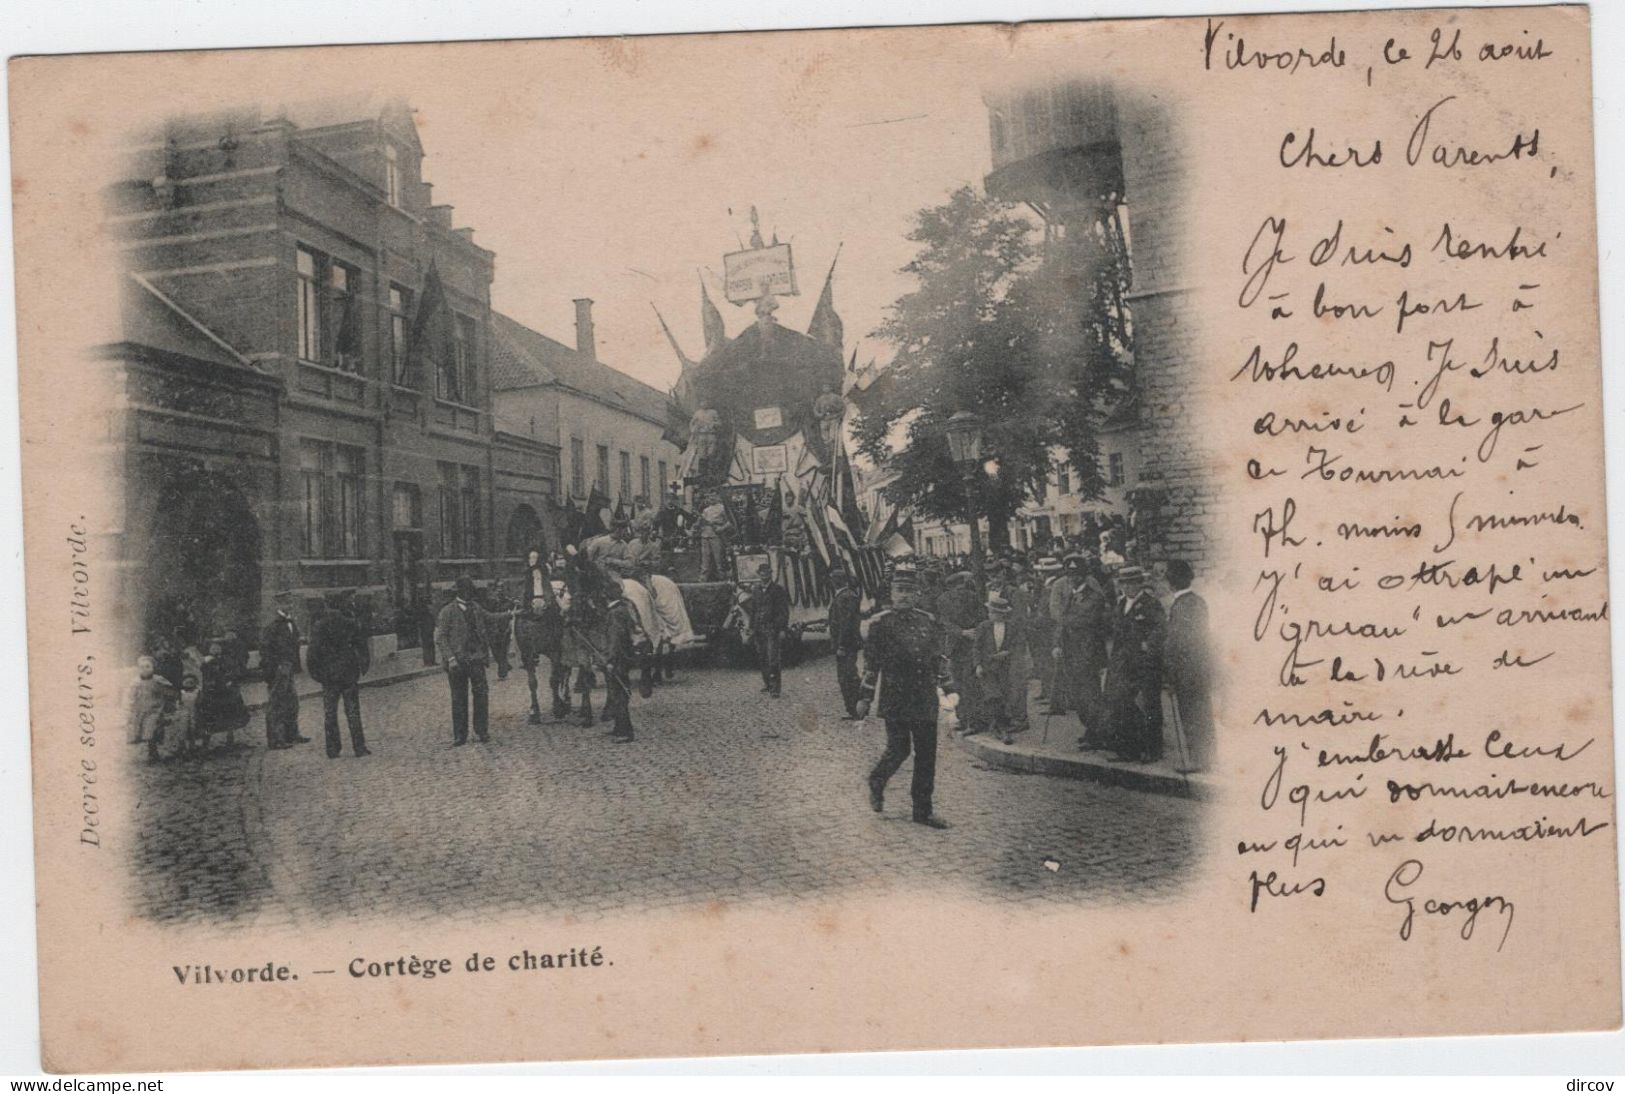 Vilvorde, ce 26 août
Chers Parents,
Je suis rentré
à bon port à
10heures. Je suis
arrivé à la gare
de Tournai à
7h. moins 5 minutes.
J'ai attrapé un
"gruau" en arrivant
à la drève de
maire.
J'embrasse Ceux
qui dormait encore
en qui ne dormaient
plus
Georges
Decrée sœurs, Vilvorde.
Vilvorde. — Cortège de charité.
delcampe.net
dircov